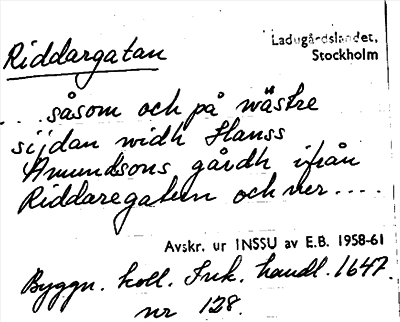 Riddargatan
Ladugårdslandet,
Stockholm
... såsom och på wästre
sijdan widh Hanss
Amundsons gårdh ifrån
Riddaregatun och ner ....
Avskr. ur INSSU av E.B. 1958-61
Byggn. koll. Ink. handl. 1647
nr 128.